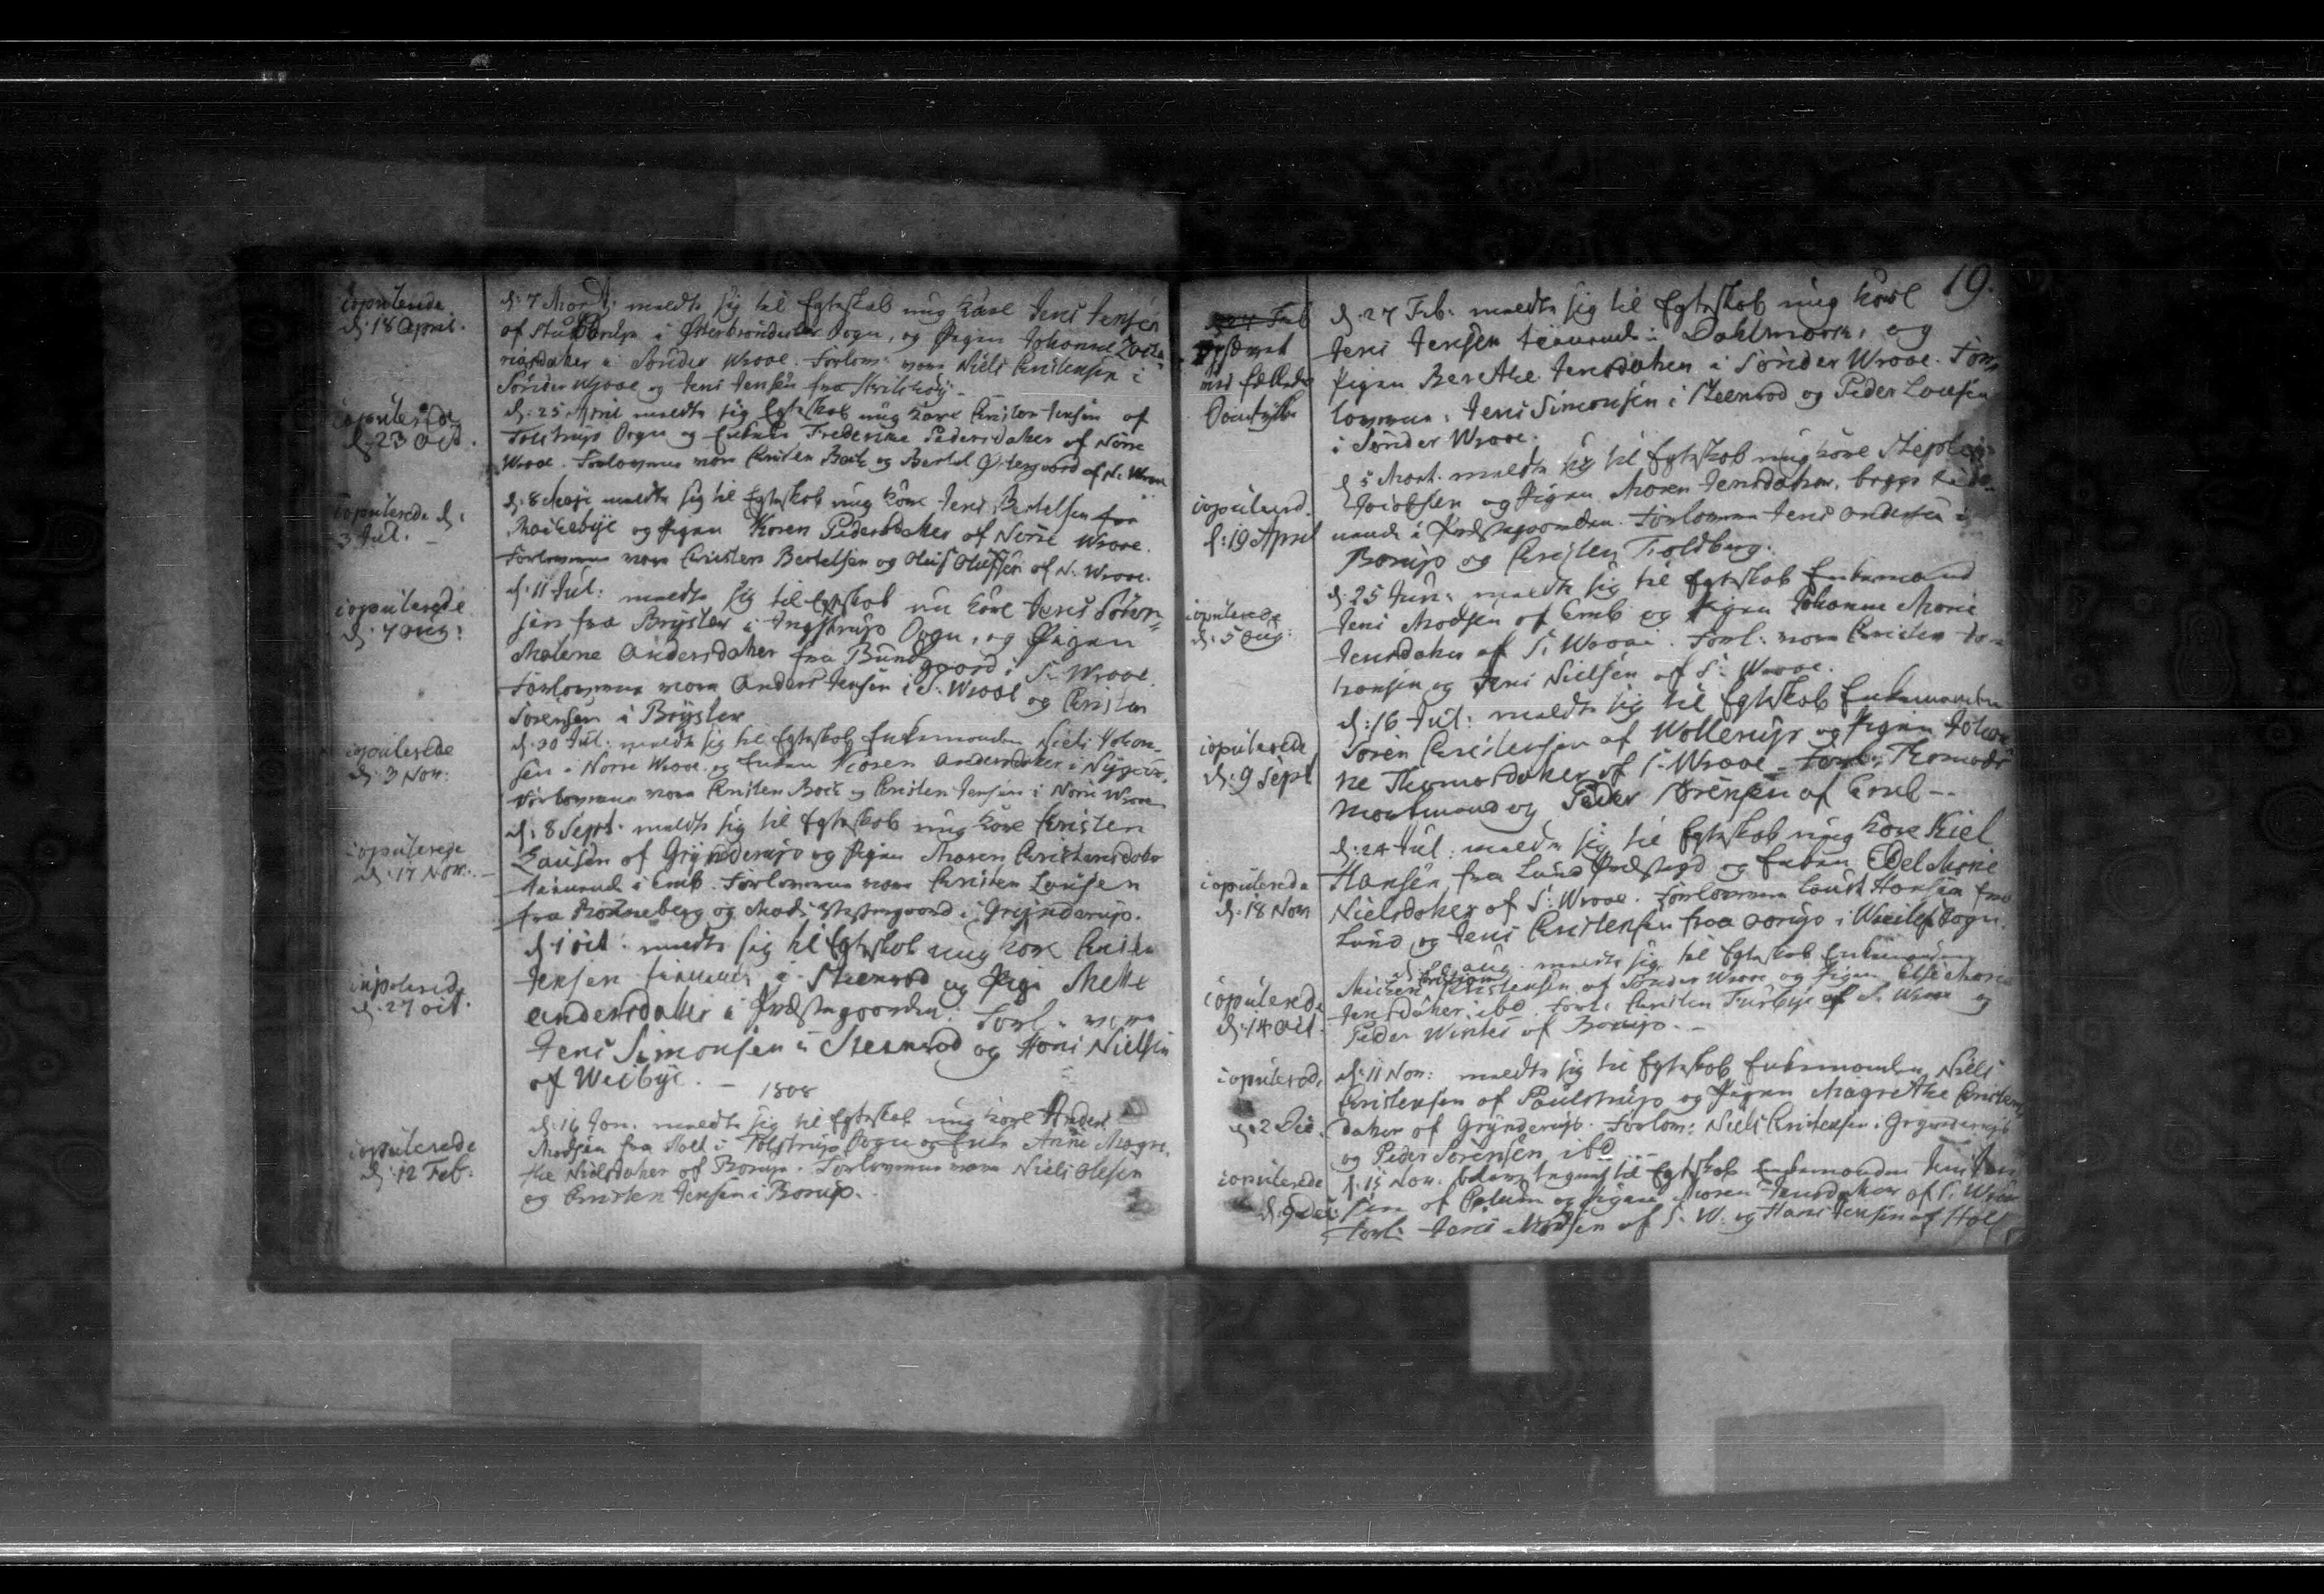 copulerede
d: 18 April.
d: 7 Mart: meldte sig til Egteskab ung Karl Jens Jensen
af i Østerbrønderslev Sogn, og Pigen Johanne Zacha
riasdater i Sønder Wraae. Forlov: vare Niels Christensen i
Sønder Wraae og Jens Jensen fra
copulerede
d: 23 Oct.
d: 25 April meldte sig Egteskab ung Karl Christen Jensen af
Tolstrup Sogn og Enken Frederikke Pedersdater af Nørre
Wraae. Forloverne vare Christen Bach og Bertel Østergaard af N: Wraae
copulerede d:
3 Jul.
d: 8 Maji meldte sig til Egteskab ung Karl Jens Bertelsen fra
og Pigen Karen Pedersdater af Nørre Wraae.
Forloverne vare Christen Bertelsen og Oluf Olufsen af N. Wraae.
copulerede
d: 7 Aug:
d: 11 Jul: meldte sig til Egteskab un Karl Jens Søren-
sen fra Brøslev i Ingstrup Sogn, og Pigen
Malene Andersdater fra Bundgaard i S: Wraae.
Forloverne vare Anders Jensen i S: Wraae og Christen
Sørensen i Brøslev
copulerede
d: 3 Nov:
d: 20 Jul: meldte sig til Egteskab Enkemanden Niels Johan-
sen i Nørre Wraae og Enken Karen Andersdater i
Forloverne vare Christen Bach og Christen Jensen i Nørre Wraae
copulerede
d: 17 Nov.
d: 8 Sept. meldte sig til Egteskab ung Karl Christen
Lausen af Grynderup og Pigen Maren Christensdater
tienende i Emb. Forloverne vare Christen Lausen
fra Rønneberg og Mads i Grynderup.
copulerede
d: 27 Oct.
d: 1 Oct: meldte sig til Egteskab ung Karl Christen
Jensen tienende i Steenrod og Pige Mette
Andersdater i Præstegaarden. Forl: vare
Jens Simonsen i Steenrod og Hans Nielsen
af Weibye. –
1808
copulerede
d: 12 Feb.
d: 16 Jan. meldte sig til Egteskab ung Karl Anders
Madsen fra i Tolstrup Sogn og Enke Anne Magre-
the Nielsdater af Borup. Forloverne vare Niels Olesen
og Christen Jensen i Borup.
19.
d: 27 Feb: meldte sig til Egteskab ung Karl
Jens Jensen tienende i Dahlmark, og
Pigen Berethe Jensdater i Sønder Wraae. For-
loverne: Jens Simonsen i Steenrod og Peder Lausen
i Sønder Wraae.
copulered.
d: 19 April
d: 5 Mart. meldte sig til Egteskab ung Karl Stephen
Jacobsen og Pigen Maren Jensdater, begge tie-
nende i Præstegaarden. Forloverne Jens Andersen i
Borup og Christen Foldberg.
copulerede
d: 5 Aug:
d: 25 Jun: meldte sig til Egteskab Enkemand
Jens Madsen af Emb og Pigen Johanne Marie
Jensdater af S: Wraae. Forl: vare Christen Jo-
hansen og Jens Nielsen af S: Wraae.
copulerede
d: 9 Sept
d: 16 Jul: meldte sig til Egteskab Enkemanden
Søren Christensen af Wollerup og Pigen Johan
ne Thomasdater af S: Wraae. Forl: Thomas
og Peder Sørensen af Emb –
copulerede
d: 18 Nov
d: 24 Jul: meldte sig til Egteskab ung Karl Kiel
Hansen fra Lund og Enken Edel Marie
Nielsdater af S: Wraae. Forloverne Laust Hansen fra
Lund, og Jens Christensen fra i Sogn.
copulerede
d: 14 Oct.
Aug. meldte sig til Egteskab Enkemanden
Michel Christensen af Sønder Wraae og Pigen Else Marie
Jensdater ibd. Forl: Christen Furbye af S. Wraae og
Peder Winter af Borup. –
copulered.
d: 2 Dec.
d: 11 Nov: meldte sig til Egteskab Enkemanden Niels
Christensen af Poulstrup og Pigen Magrethe Christens
dater af Grynderup. Forlov: Niels Christensen i Grynderup
og Peder Sørensen ibd
copulerede
d: 9 Dec:
d: 15 Nov. til Egteskab Enkemanden Jens
sen af og Pigen Maren Jensdater af S: Wraae
Forl: Jens Madsen af S: W. og Hans Jensen af